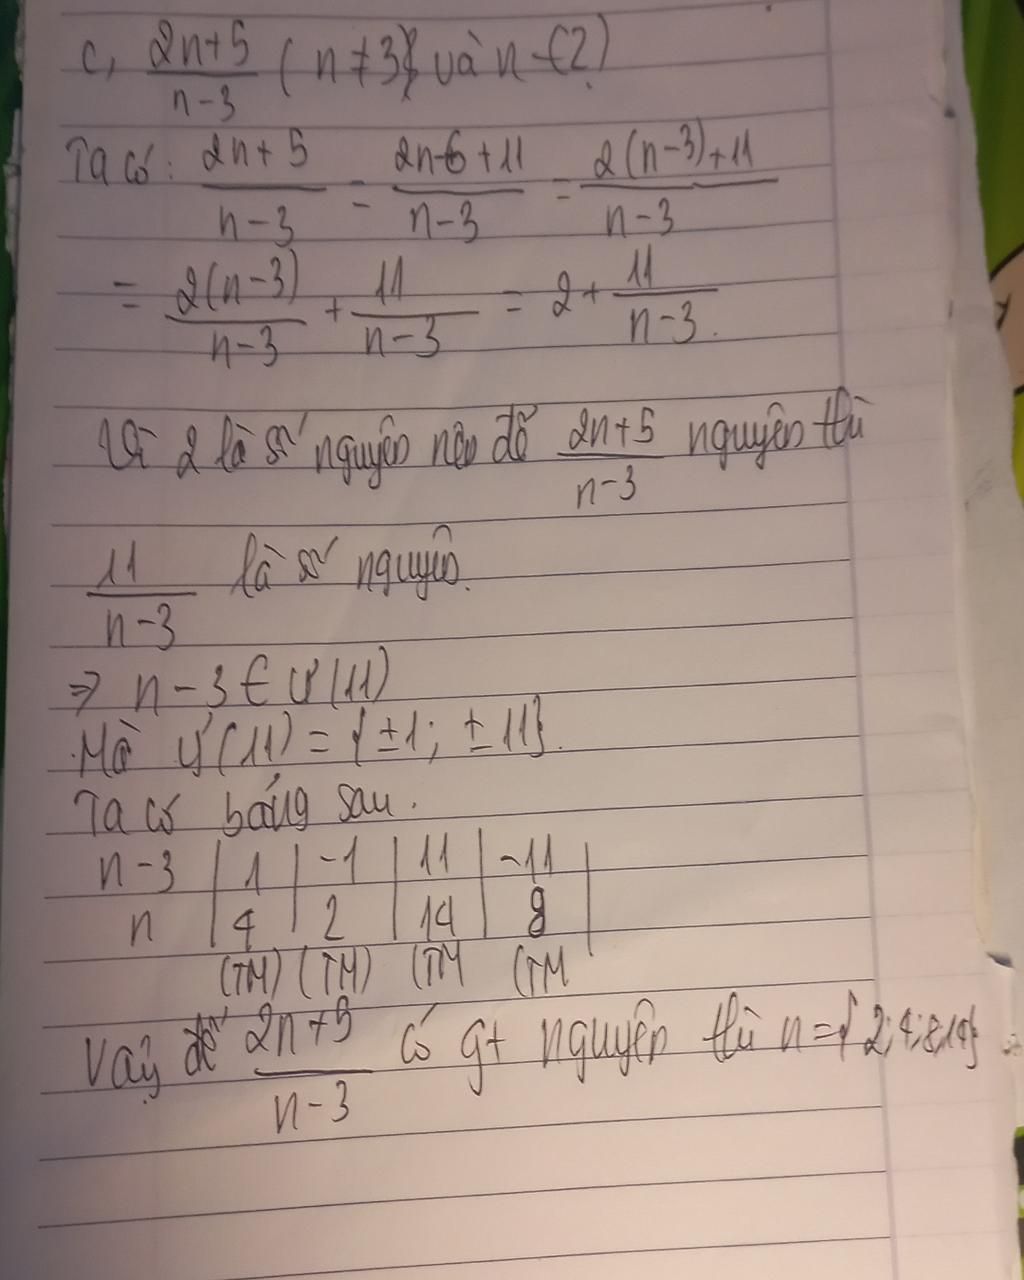 c, 2n+5/n-3 ( n≠3 và n-(2)
Ta có: 2n+5/n-3 = 2n-6+11/n-3 = 2(n-3)+11/n-3
= 2(n-3)/n-3 + 11/n-3 = 2 + 11/n-3.
Vì 2 là số nguyên nên để 2n+5/n-3 nguyên thì
11/n-3 là số nguyên.
⇒ n-3 ∈ Ư(11)
Mà Ư(11) = {±1; ±11}.
Ta có bảng sau.
n-3 | 1 | -1 | 11 | -11 |
n | 4 | 2 | 14 | 8
(TM) (TM) (TM (TM
Vậy để 2n+5/n-3 có gt nguyên thì n={2;4;8;14}